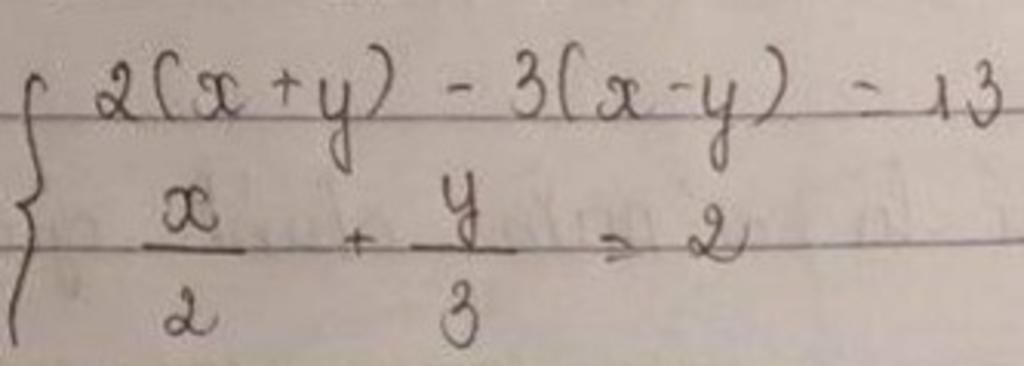 2(x+y) - 3(x-y) = 13
x/2 + y/3 = 2